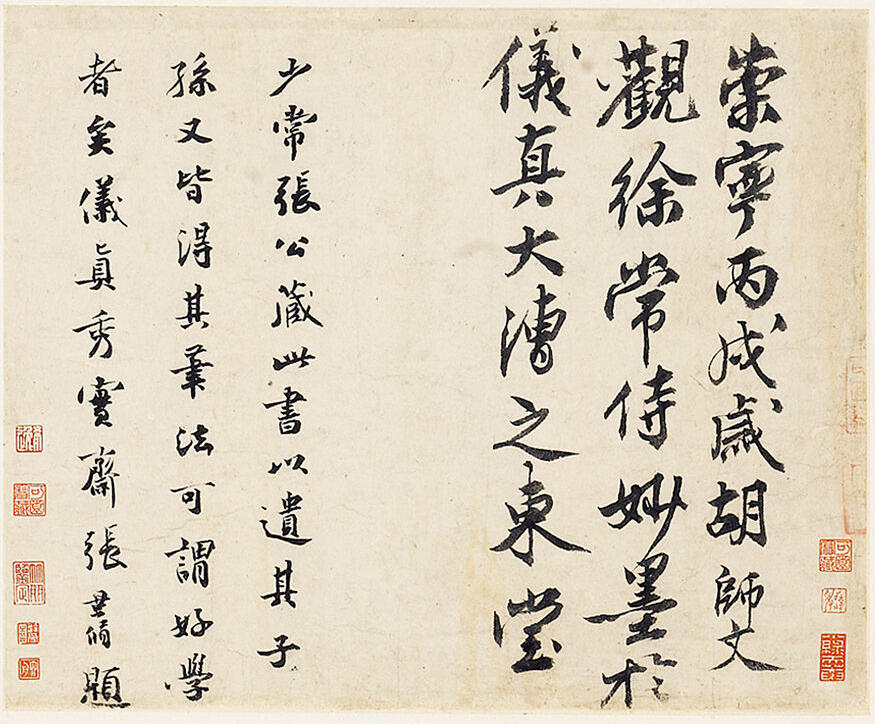 崇寧丙戌歲胡師文
觀徐常侍妙墨於
儀真大漕之東堂
少常張公藏此書以遺其子
孫又皆得其筆法可謂好學
者矣儀眞秀實齋張題